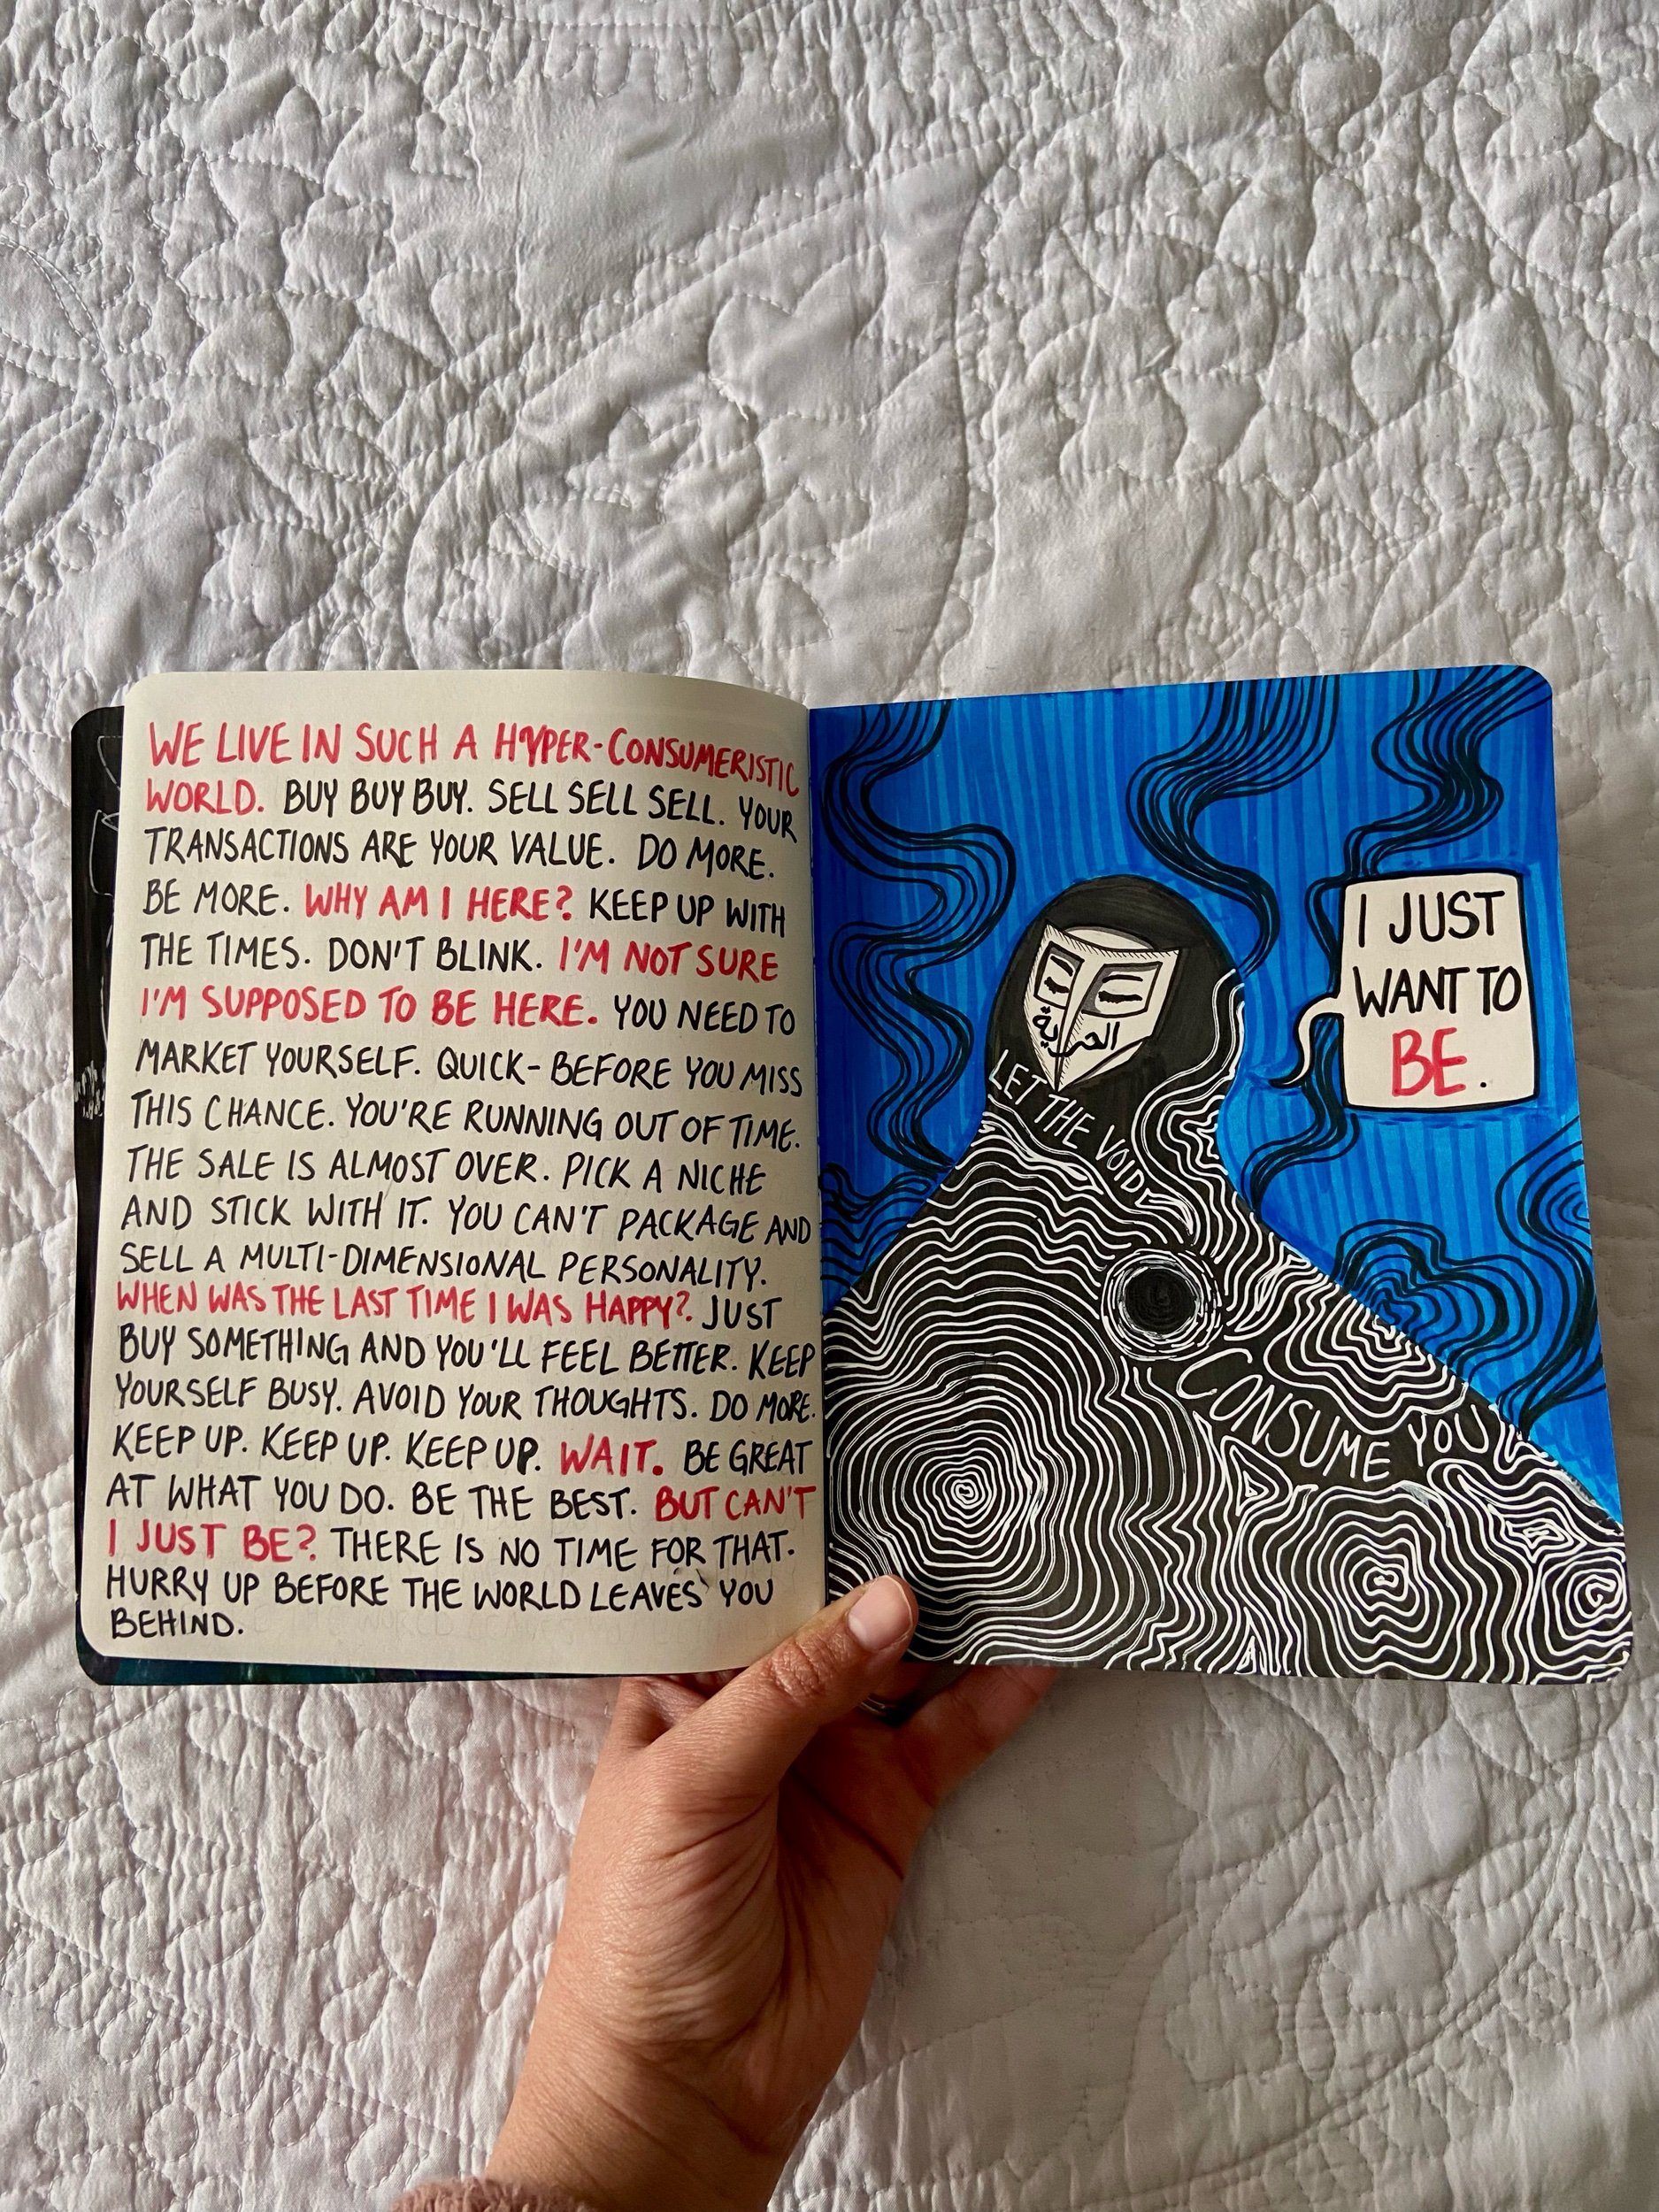 WE LIVE IN SUCH A HYPER-CONSUMERISTIC
WORLD. BUY BUY BUY. SELL SELL SELL. YOUR
TRANSACTIONS ARE YOUR VALUE. DO MORE.
BE MORE. WHY AM I HERE? KEEP UP WITH
THE TIMES. DON'T BLINK. I'M NOT SURE
I'M SUPPOSED TO BE HERE. YOU NEED TO
MARKET YOURSELF. QUICK- BEFORE YOU MISS
THIS CHANCE. YOU'RE RUNNING OUT OF TIME.
THE SALE IS ALMOST OVER. PICK A NICHE
AND STICK WITH IT. YOU CAN'T PACKAGE AND
SELL A MULTI-DIMENSIONAL PERSONALITY.
WHEN WAS THE LAST TIME I WAS HAPPY? JUST
BUY SOMETHING AND YOU'LL FEEL BETTER. KEEP
YOURSELF BUSY. AVOID YOUR THOUGHTS. DO MORE.
KEEP UP. KEEP UP. KEEP UP. WAIT. BE GREAT
AT WHAT YOU DO. BE THE BEST. BUT CAN'T
I JUST BE? THERE IS NO TIME FOR THAT.
HURRY UP BEFORE THE WORLD LEAVES YOU
BEHIND.
I JUST
WANT TO
BE.
الحرية
LET THE VOID
CONSUME YOU